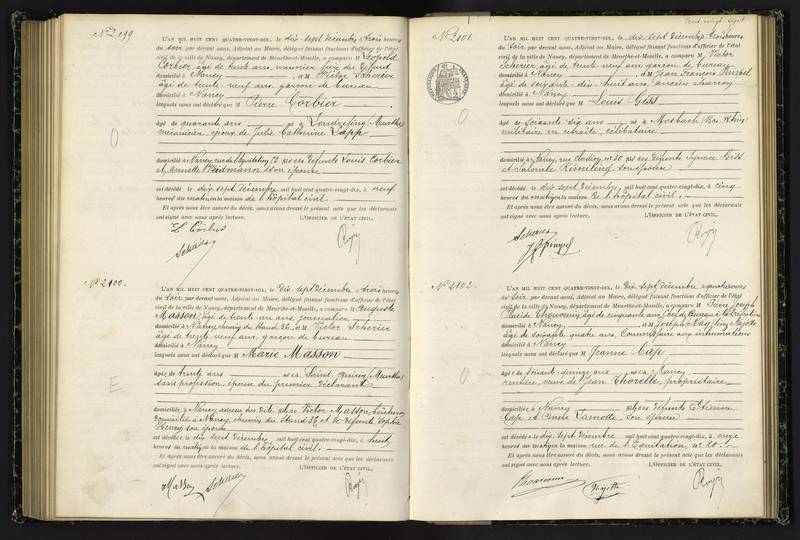 N° 2099
L'AN MIL HUIT CENT QUATRE-VINGT-DIX, le dix-sept décembre à trois heures
du soir par devant nous, Adjoint au Maire, délégué faisant fonctions d'officier de l'état
civil de la ville de Nancy, département de Meurthe-et-Moselle, a comparu M Léopold
Corbier, âgé de trente ans, menuisier, frère du défunt
domicilié à Nancy, et M Victor Scherier
âgé de trente neuf ans, garçon de bureau
domicilié à Nancy
lesquels nous ont déclaré que M Pierre Corbier
âgé de quarante ans né à (Meurthe)
mécanicien, époux de Julie Catherine Lapp
domicilié à Nancy, rue de l'équitation, 13 fils des défunts Louis Corbier
et Annette son épouse
est décédé le dix-sept décembre mil huit cent quatre-vingt-dix, à neuf
heures du matin en la maison de l'hôpital civil
Et après nous être assuré du décès, nous avons dressé le présent acte que les déclarants
ont signé avec nous après lecture. L'OFFICIER DE L'ÉTAT CIVIL,
N° 2100
L'AN MIL HUIT CENT QUATRE-VINGT-DIX, le dix sept décembre à trois heures
du soir, par devant nous, Adjoint au Maire, délégué faisant fonctions d'officier de l'état
civil de la ville de Nancy, département de Meurthe-et-Moselle, a comparu M Auguste
Masson, âgé de trente un ans, journalier
domicilié à Nancy, chemin du Stand 36, et M Victor Scherier
âgé de trente neuf ans, garçon de bureau
domicilié à Nancy
lesquels nous ont déclaré que M Marie Masson
âgée de trente ans née à Saint Quirin (Meurthe)
sans profession, épouse du premier déclarant
domiciliée à Nancy, fille de Victor Masson, bûcheron
domicilié à Nancy, chemin du Stand 36 et de défunte Sophie
Henry son épouse
est décédée le dix sept décembre mil huit cent quatre-vingt-dix, à huit
heures du matin en la maison de l'hôpital civil.
Et après nous être assuré du décès, nous avons dressé le présent acte que les déclarants
ont signé avec nous après lecture. L'OFFICIER DE L'ÉTAT CIVIL,
Masson
Cent vingt sept
N° 2101
L'AN MIL HUIT CENT QUATRE-VINGT-DIX, le dix sept décembre à trois heures
du soir par devant nous, Adjoint au Maire, délégué faisant fonctions d'officier de l'état
civil de la ville de Nancy, département de Meurthe-et-Moselle, a comparu M Victor
Scherier âgé de trente neuf ans garçon de bureau
domicilié à Nancy, et M Jean François
âgé de soixante-dix-huit ans, ancien charron
domicilié à Nancy
lesquels nous ont déclaré que M Louis Giss
âgé de soixante dix ans né à Mosbach (Bas Rhin)
militaire en retraite, célibataire
domicilié à Nancy, rue Clodion, n° 30 fils des défunts Ignace Giss
et Salomée son épouse
est décédé le dix-sept décembre mil huit cent quatre-vingt-dix, à cinq
heures du matin en la maison de l'hôpital civil.
Et après nous être assuré du décès, nous avons dressé le présent acte que les déclarants
ont signé avec nous après lecture. L'OFFICIER DE L'ÉTAT CIVIL,
N° 2102
L'AN MIL HUIT CENT QUATRE-VINGT-DIX, le dix sept décembre à quatre heures
du soir, par devant nous, Adjoint au Maire, délégué faisant fonctions d'officier de l'état
civil de la ville de Nancy, département de Meurthe-et-Moselle, a comparu M Pierre Joseph
Placide Thouvenin, âgé de cinquante ans, chef de bureau à la Préfecture
domicilié à Nancy, et M Joseph
âgé de soixante quatre ans, Commissaire aux inhumations
domicilié à Nancy
lesquels nous ont déclaré que M Jeanne Cap
âgée de soixante quinze ans née à Nancy
rentière, veuve de Jean Thorelle, propriétaire
domiciliée à Nancy fille des défunts Etienne
Cap et Lamotte, son épouse
est décédée le dix sept décembre mil huit cent quatre-vingt-dix, à onze
heures du matin en la maison rue de l'Equitation, n° 20.
Et après nous être assuré du décès, nous avons dressé le présent acte que les déclarants
ont signé avec nous après lecture. L'OFFICIER DE L'ÉTAT CIVIL,